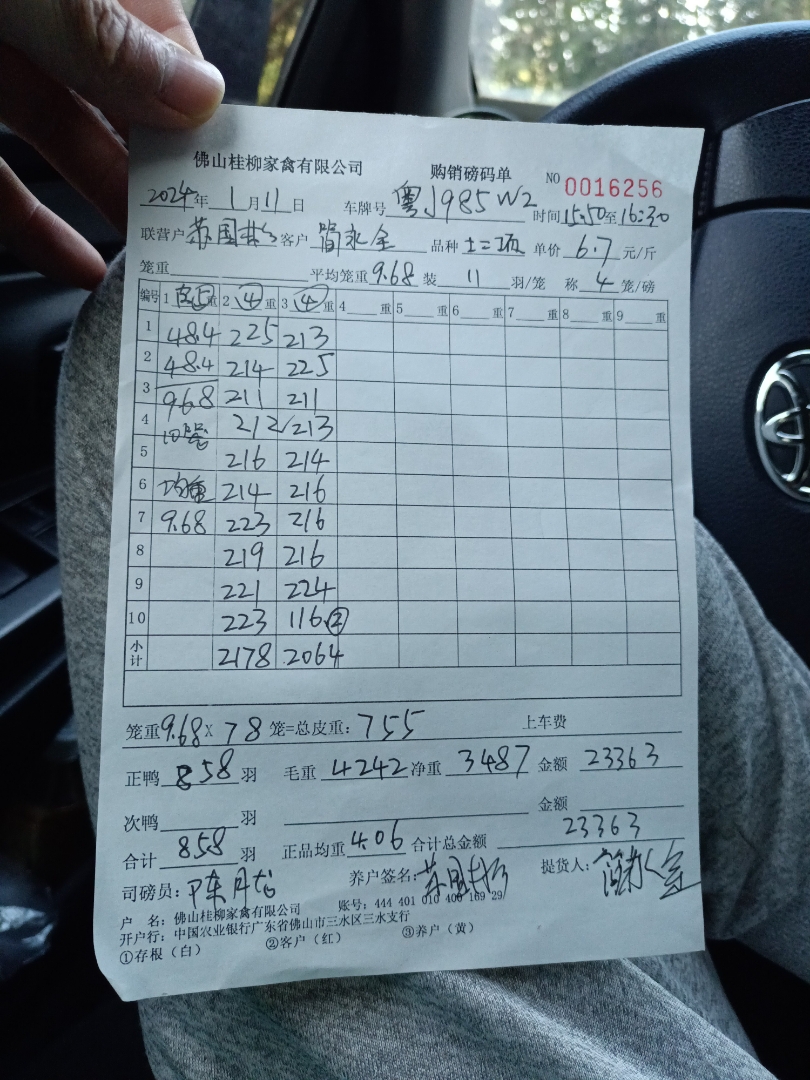 佛山桂柳家禽有限公司 购销磅码单 NO 0016256
2024年 1月 11日 车牌号 粤J985W2 时间15:50至16:30
联营户 苏国 客户 简永全 品种 土二项 单价 6.7 元/斤
笼重 平均笼重 9.68 装 11 羽/笼 称 4 笼/磅
编号 1 皮⑤重 2 ④ 重 3 ④ 重 4 重 5 重 6 重 7 重 8 重 9 重
1 48.4 225 213
2 48.4 214 225
3 96.8 211 211
4 10笼 212/213
5 216 214
6 均重 214 216
7 9.68 223 216
8 219 216
9 221 224
10 223 116.②
小计 2178 2064
笼重9.68×78笼=总皮重:755 上车费
正鸭 858 羽 毛重 4242 净重 3487 金额 23363
次鸭 羽 金额
合计 858 羽 正品均重 4.06 合计总金额 23363
司磅员: 陈月 养户签名: 苏国 提货人: 简永全
户 名: 佛山桂柳家禽有限公司 账号: 444 401 010 400 169 29
开户行: 中国农业银行广东省佛山市三水区三水支行
①存根(白) ②客户(红) ③养户(黄)